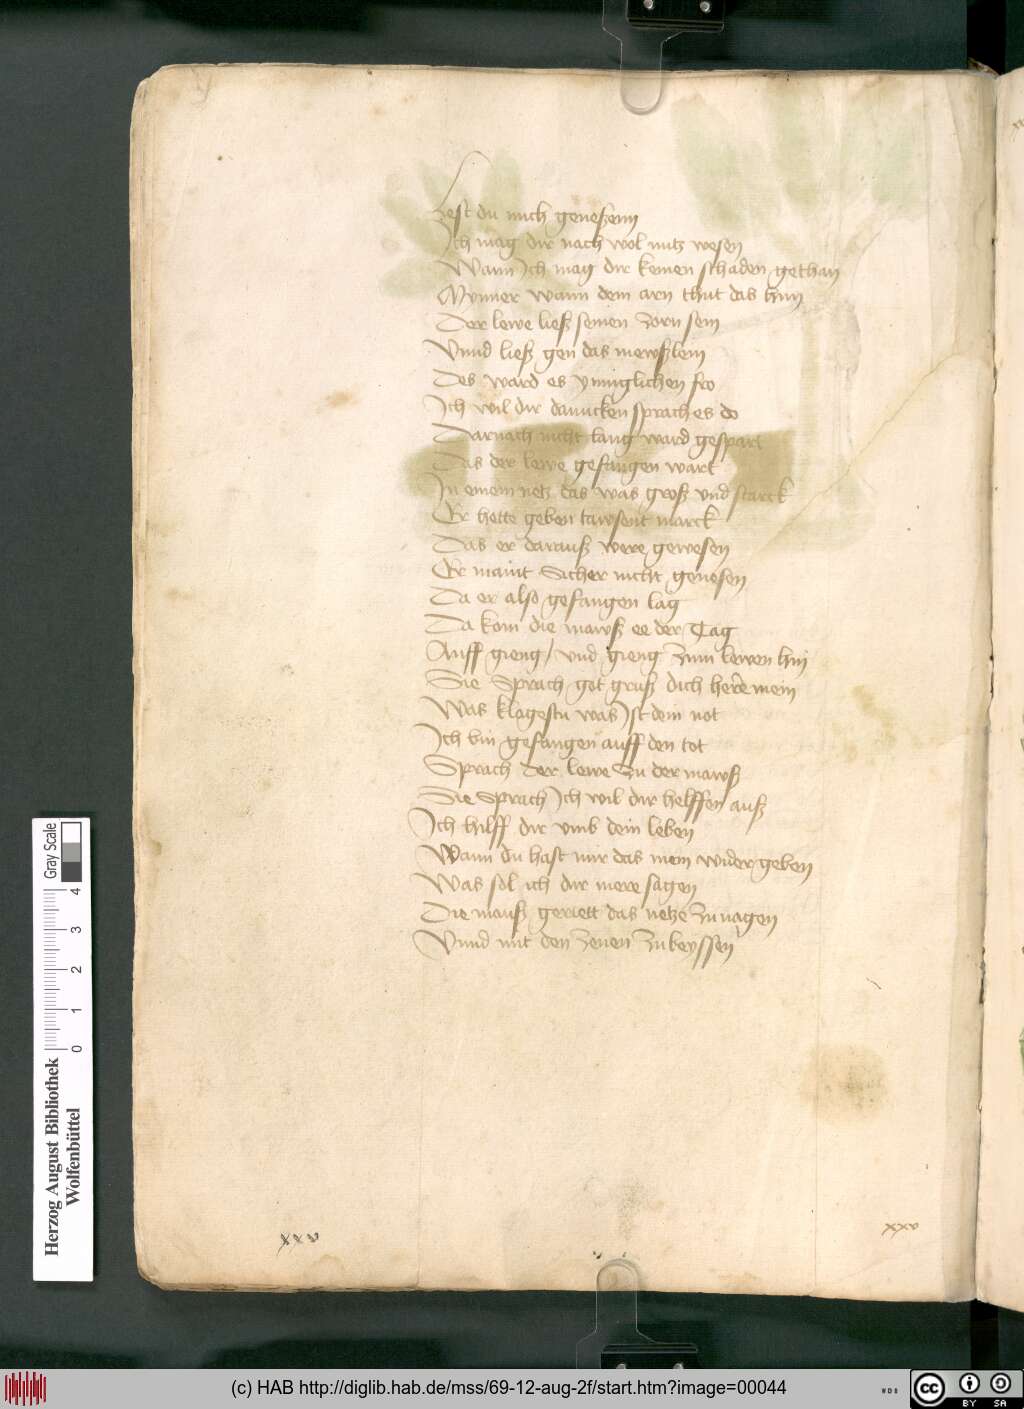 Lest du mich geneßenn
Ich mag dir nach wol nutz wesen
Wann Ich mag dir keinen schaden gethan
Mynner wann dem arn thut das hun
Der lewe ließ seinen zorn sein
Vnnd ließ gen das mewßlein
Des ward es ynniglichen fro
Ich wil dir danncken sprach es do
Darnach nicht lang ward gespart
Das der lewe gefangen wart
In einem netz das was groß vnd starck
Er hette geben tawsent marck
Das er darauß were gewesen
Er maint Sicher nicht genesen
Da er also gefangen lag
Da kom die mawß ee der Tag
Auff gieng / vnd gieng zum lewen hin
Sie Sprach got gruß dich here mein
Was klagestu was Ist dein not
Ich bin gefangen auff den tot
Sprach der lewe zu der mawß
Sie Sprach Ich wil dir helffen auß
Ich hilff dir vmb dein leben
Wann du hast mir das mein wider geben
Was sol ich dir mere sagen
Die mauß geriett das netze zu nagen
Vnnd mit den zenen zu beyssen
xxv
xxv
Gray Scale
4
3
2
1
0
Herzog August Bibliothek
Wolfenbüttel
(c) HAB http://diglib.hab.de/mss/69-12-aug-2f/start.htm?image=00044
WDB
cc
BY SA